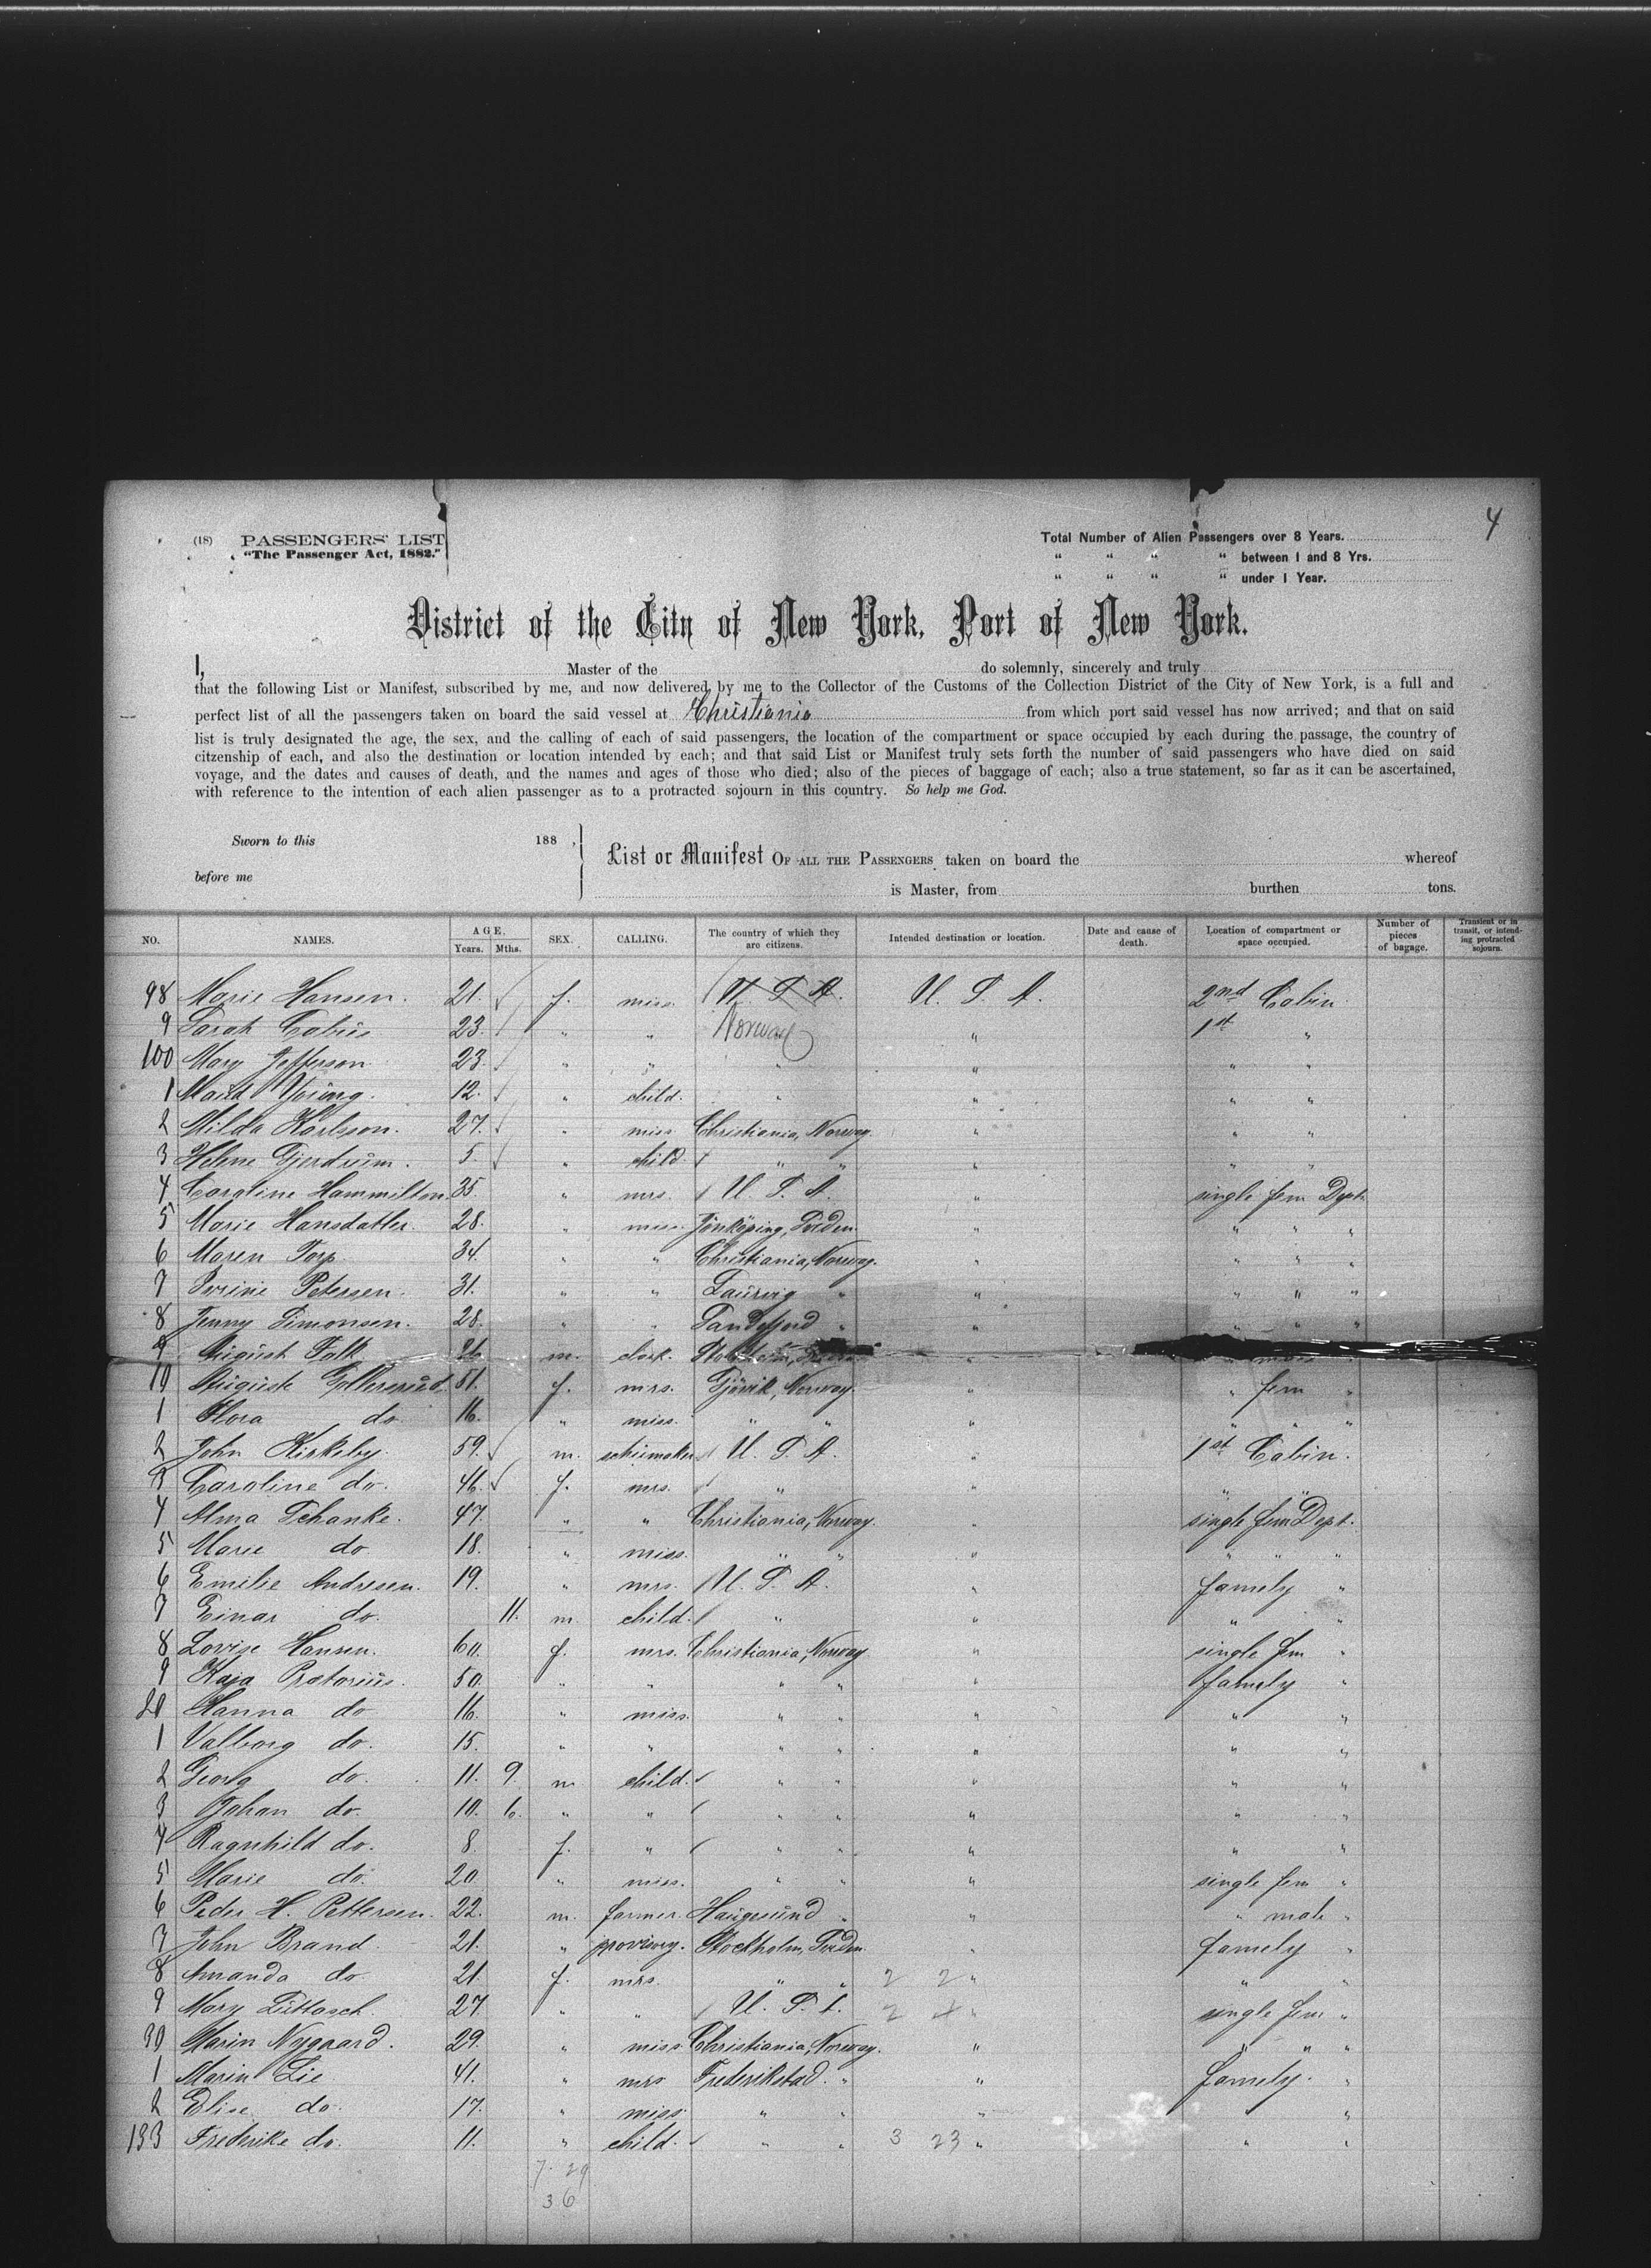 4
(18) PASSENGERS' LIST
"The Passenger Act, 1882."
Total Number of Alien Passengers over 8 Years.
" " " " between 1 and 8 Yrs.
" " " " under 1 Year.
District of the City of New York, Port of New York.
I, Master of the do solemnly, sincerely and truly
that the following List or Manifest, subscribed by me, and now delivered by me to the Collector of the Customs of the Collection District of the City of New York, is a full and
perfect list of all the passengers taken on board the said vessel at Christiania from which port said vessel has now arrived; and that on said
list is truly designated the age, the sex, and the calling of each of said passengers, the location of the compartment or space occupied by each during the passage, the country of
citzenship of each, and also the destination or location intended by each; and that said List or Manifest truly sets forth the number of said passengers who have died on said
voyage, and the dates and causes of death, and the names and ages of those who died; also of the pieces of baggage of each; also a true statement, so far as it can be ascertained,
with reference to the intention of each alien passenger as to a protracted sojourn in this country. So help me God.
Sworn to this 188 ,
before me
List or Manifest OF ALL THE PASSENGERS taken on board the whereof
is Master, from burthen tons.
NO. NAMES. AGE. Years. Mths. SEX. CALLING. The country of which they are citizens. Intended destination or location. Date and cause of death. Location of compartment or space occupied. Number of pieces of bagage. Transient or in transit, or intending protracted sojourn.
98 Marie Hansen. 21. f. miss. U. S. A. U. S. A. 2nd Cabin
9 Sarah 23 " " Norway " 1st "
100 Mary Jefferson 23. " " " " " "
1 Maud Young. 12. " child. " " " "
2 Hilda Karlsson. 27. " miss Christiania, Norway. " " "
3 Helene Gjerdrum. 5. " child. " " " " "
4 Caroline Hammilton. 35. " mrs. U. S. A. " single fem Dept.
5 Marie Hansdatter. 28. " miss. Jönköping, Sveden. " " " "
6 Maren Torp 34. " " Christiania, Norway. " " " "
7 Petersen. 31. " " Laurvig " " " " "
8 Jenny Simonsen. 28. " " Sandefjord " " " " "
9 August Falk 26 m. clerk. "
10 Auguste 51. f. mrs. Gjövik, Norway. " " fem "
1 Flora do 16. " miss. " " " " " "
2 John Kirkeby. 59. m. schumaker U. S. A. " 1st Cabin.
3 Caroline do. 46. f. mrs. " " "
4 Alma Schanke. 47. " " Christiania, Norway. " single fem Dept.
5 Marie do 18. " miss. " " " " " "
6 Emilie Andresen. 19. " mrs. U. S. A. " famely "
7 Einar do. 11. m. child. " " " "
8 Lovise Hansen. 60. f. mrs. Christiania, Norway " single fem "
9 Kaja Prætorius. 50. " " " " " famely "
20 Hanna do 16. " miss. " " " " "
1 Valborg do. 15. " " " " " " "
2 Georg do. 11. 9. m child. " " " " "
3 Johan do. 10. 6. " " " " " " "
4 Ragnhild do. 8. f. " " " " " "
5 Marie do. 20. " miss. " " " single fem "
6 Peder H. Pettersen. 22. m. farmer. Haugesund " " " male "
7 John Brand. 21. " Stockholm, Sveden. " famely "
8 Amanda do 21. f. mrs. " " 2 2 " " "
9 Mary 27. " " U. S. A. 2 " single fem "
30 Marin Nygaard. 29. " miss Christiania, Norway. " " " "
1 Marin Lie 41. " mrs Frederikstad. " " famely. "
2 Elise do. 17. " miss. " " " " "
133 Frederike do. 11. " child. " " 3 23 " " "
7. 29
36